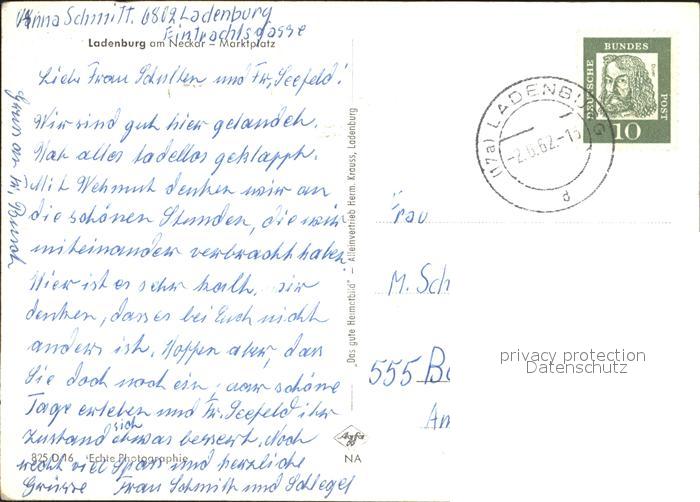 Anna Schmitt. 6802 Ladenburg
Eintrachtsgasse
Ladenburg am Neckar – Marktplatz
Liebe Frau Schulten und Fr. Seefeld!
Wir sind gut hier gelandet.
Hat alles tadellos geklappt.
Mit Wehmut denken wir an
die schönen Stunden, die wir
miteinander verbracht haben.
Hier ist es sehr kalt. wir
denken, dass es bei Euch nicht
anders ist. Hoffen aber, das
Sie doch noch ein paar schöne
Tage erleben und Fr. Seefeld ihr
Zustand sich etwas bessert. Noch
recht viel Spass und herzliche
Grüsse Frau Schmitt und Schlegel
Gruss an Fr.
825 D 16 Echte Photographie
"Das gute Heimatbild" – Alleinvertrieb Herm. Krauss, Ladenburg
Agfa
NA
DEUTSCHE BUNDES POST
10
(17a) LADENBURG
-2.6.62.-
d
Frau
M. Sch
555 Be
privacy protection
Datenschutz